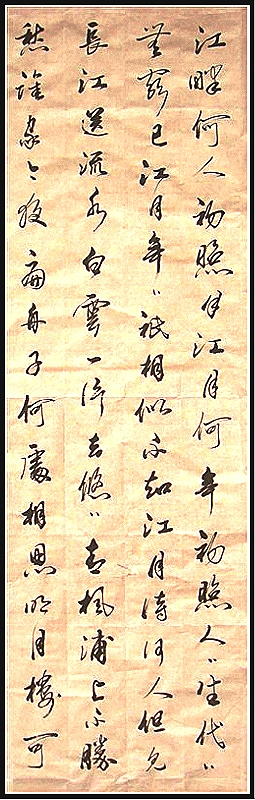 江畔何人初照月江月何年初照人〻生代〻
無窮已江月年〻祇相似不知江月待何人但見
長江送流水白雲一片去悠〻青楓浦上不勝
愁誰家今夜扁舟子何處相思明月樓可